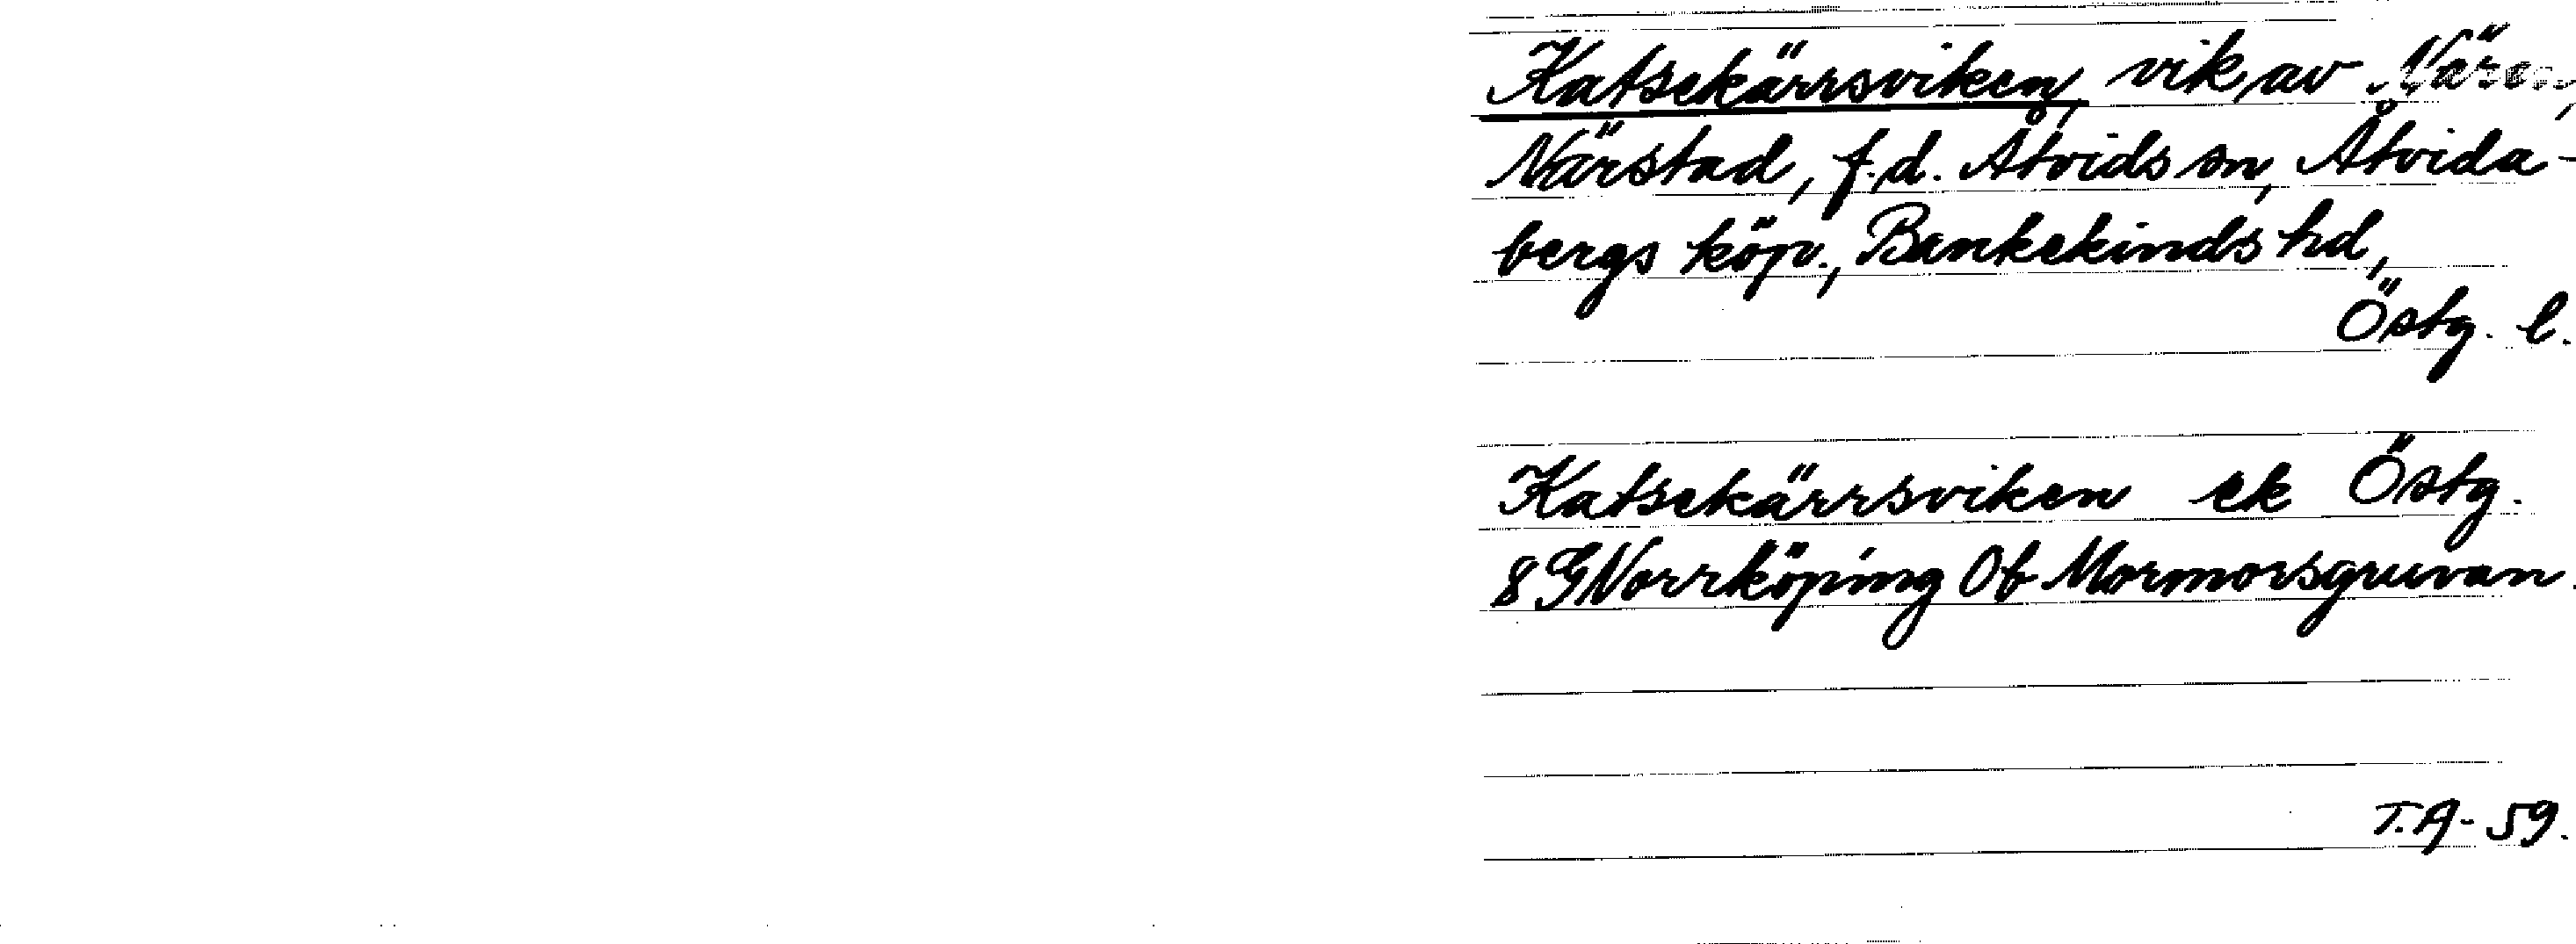 Katsekärrsviken, vik av Nären,
Närstad, f.d. Åtvids sn, Åtvida-
bergs köp., Bankekinds hd,
Östg. l.
Katsekärrsviken ek Östg.
8G Norrköping 0b Mormorsgruvan.
T.A- 59.